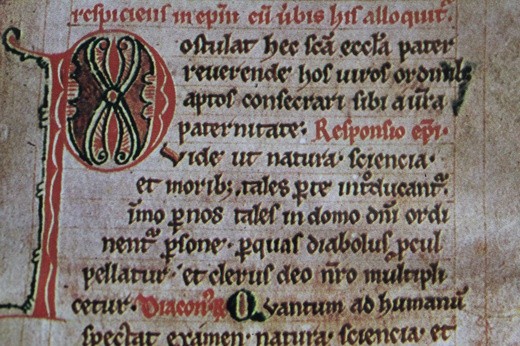 respiciens in ep̄m eū ūbis his alloquit᷑.
Postulat hec sc̄a eccl̄a pater
reuerende hos uiros ordinib;
aptos consecrari sibi a ūra
paternitate· Responsio ep̄i·
Vide ut natura· sciencia·
et morib; tales p̄ te int̊ducant᷑.
īmo ꝑ nos tales in domo dn̄i ordi
nent᷑ ꝑsone· ꝑ quas diabolus ꝓcul
pellatur· et clerus deo n̄ro multipli
cetur· Diacon⁹ Ʀ Quantum ad humanū
spectat examen· natura· sciencia· et